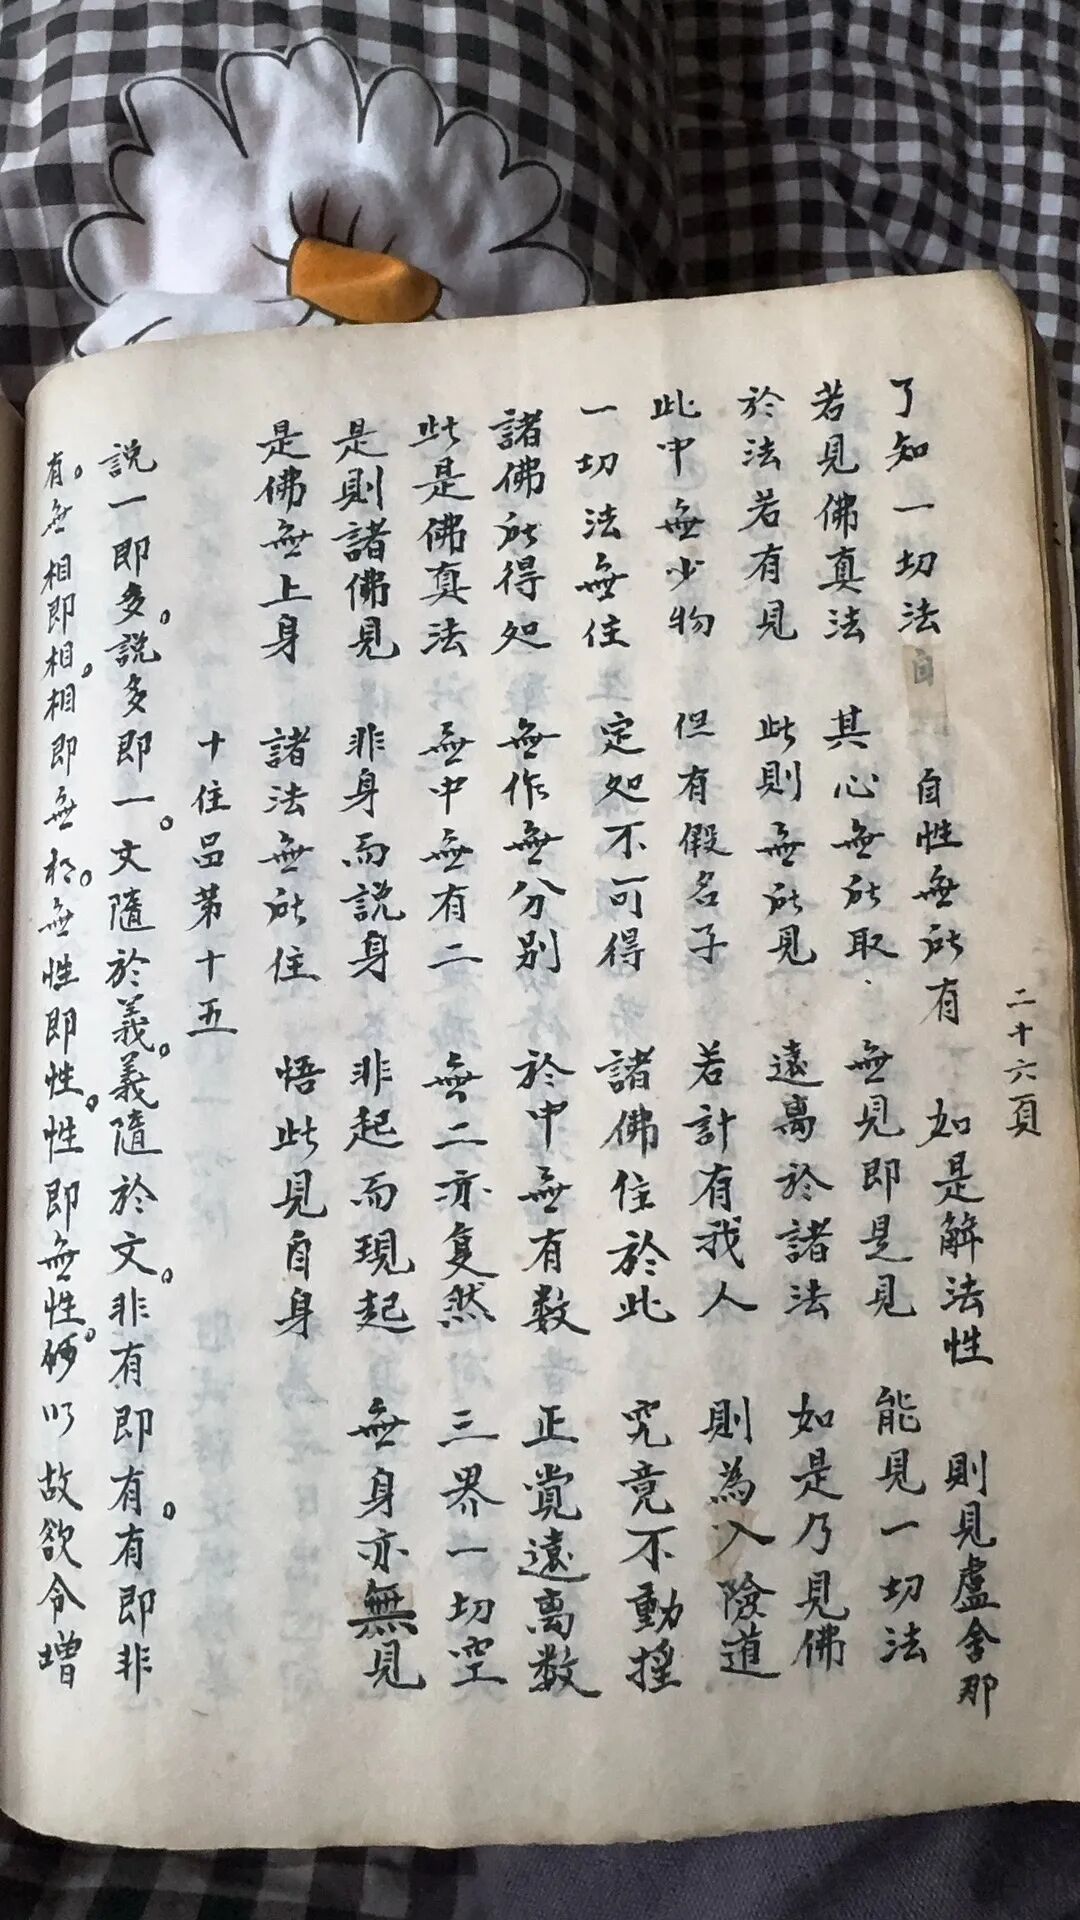 二十六頁
了知一切法 自性無所有 如是解法性 則見盧舍那
若見佛真法 其心無所取 無見即是見 能見一切法
於法若有見 此則無所見 遠离於諸法 如是乃見佛
此中無少物 但有假名子 若計有我人 則為入險道
一切法無住 定処不可得 諸佛住於此 究竟不動摇
諸佛所得処 無作無分别 於中無有数 正覚遠离数
此是佛真法 無中無有二 無二亦复然 三界一切空
是則諸佛見 非身而説身 非起而現起 無身亦無見
是佛無上身 諸法無所住 悟此見自身
十住品第十五
説一即多。説多即一。文隨於義。義隨於文。非有即有。有即非
有。無相即相。相即無相。無性即性。性即無性。何以故欲令增